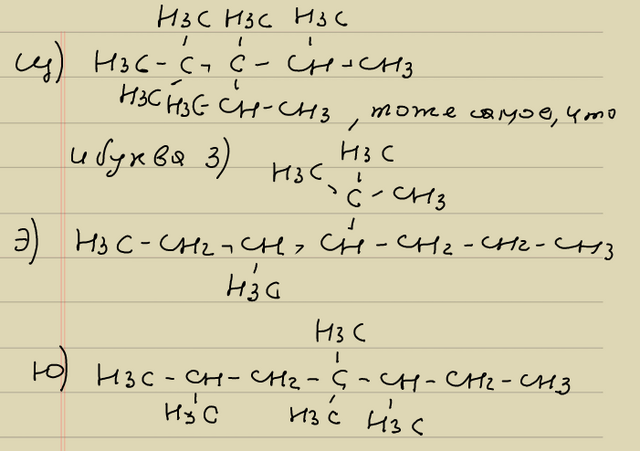 H3C H3C H3C
щ) H3C - C - C - CH - CH3
H3C H3C - CH - CH3, тоже самое, что
и буква З) H3C
H3C
C - CH3
Э) H3C - CH2 - CH - CH - CH2 - CH2 - CH3
H3C
H3C
Ю) H3C - CH - CH2 - C - CH - CH2 - CH3
H3C H3C H3C